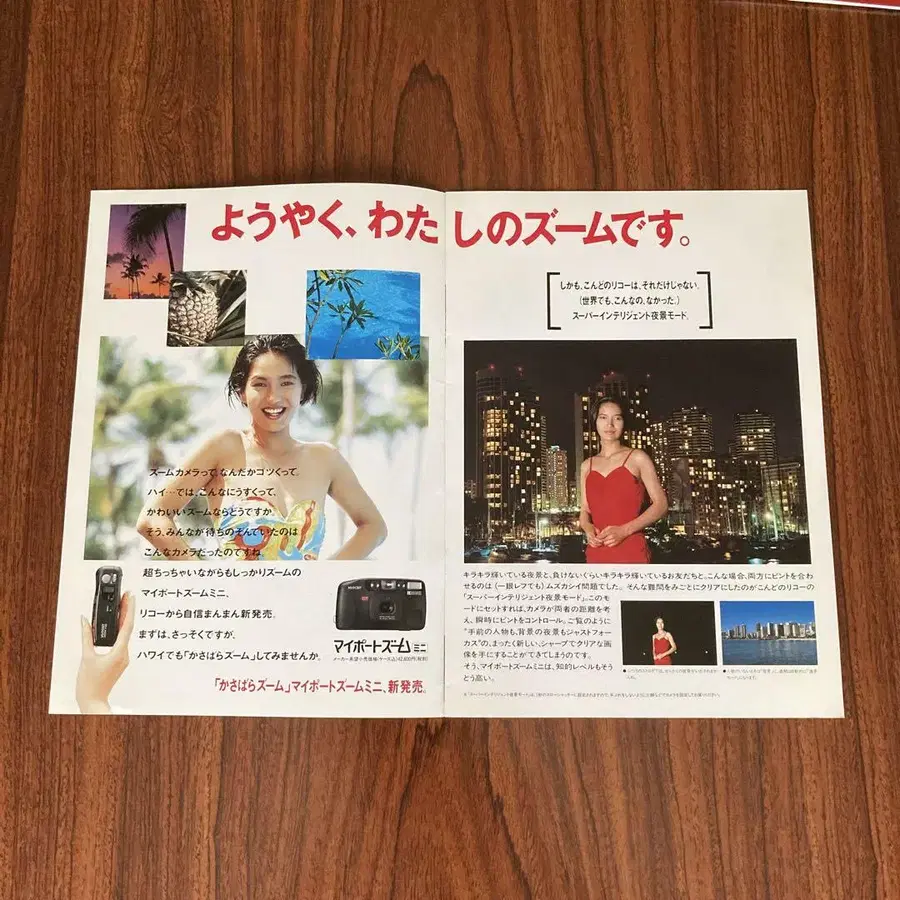 ようやく、わたしのズームです。
しかも、こんどのリコーは、それだけじゃない。
(世界でも、こんなの、なかった。)
スーパーインテリジェント夜景モード。
ズームカメラって、なんだかゴツくって。
ハイ…では、こんなにうすくって、
かわいいズームならどうですか。
そう、みんなが待ちのぞんでいたのは
こんなカメラだったのですね。
超ちっちゃいながらもしっかりズームの
マイポートズームミニ、
リコーから自信まんまん新発売。
まずは、さっそくですが、
ハワイでも「かさばらズーム」してみませんか。
RICOH
マイポートズームミニ
「かさばらズーム」マイポートズームミニ、新発売。
キラキラ輝いている夜景と、負けないぐらいキラキラ輝いているお友だちと。こんな場合、両方にピントを合わ
せるのは(一眼レフでも)ムズカシイ問題でした。そんな難問をみごとにクリアにしたのがこんどのリコーの
「スーパーインテリジェント夜景モード」。このモ
ードにセットすれば、カメラが両者の距離を考
え、瞬時にピントをコントロール。ご覧のように
"手前の人物も、背景の夜景もジャストフォー
カス"の、まったく新しい、シャープでクリアな画
像を手にすることができてしまうのです。
そう、マイポートズームミニは、知的レベルもそう
とう高い。